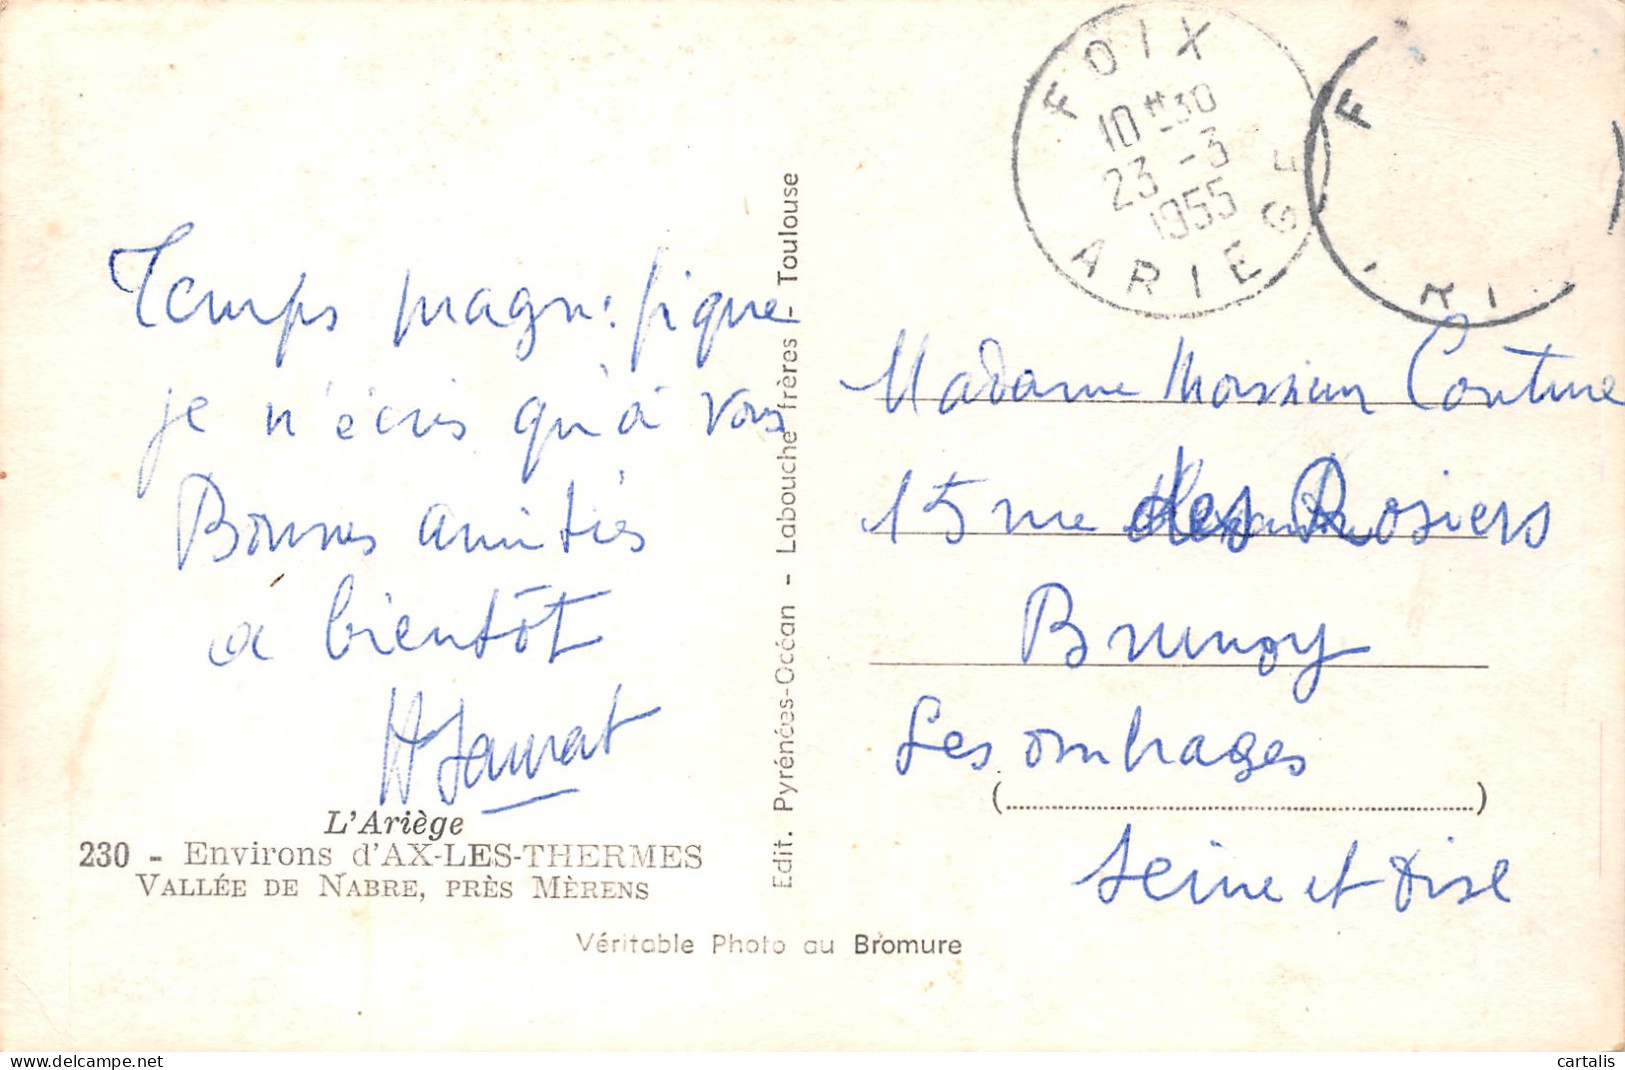 Temps magnifique
je n'écris qu'à vous
Bonnes amitiés
à bientôt
L'Ariège
230 - Environs d'AX-LES-THERMES
VALLÉE DE NABRE, PRÈS MÈRENS
Edit. Pyrénées-Océan - Labouche frères - Toulouse
Véritable Photo au Bromure
FOIX
10H30
23 -3
1955
ARIEGE
F
RI
Madame Monsieur Couture
15 rue des Rosiers
Brunoy
Les ombrages
(..........)
Seine et Oise
cartalis